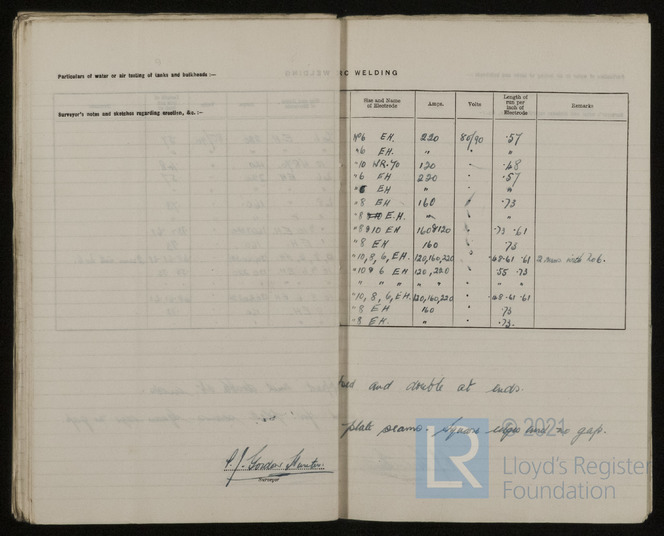 Particulars of water or air testing of tanks and bulkheads :—
IC WELDING
Surveyor's notes and sketches regarding erection, &c. :—
Size and Name of Electrode Amps. Volts Length of run per inch of Electrode Remarks
No 6 EH. 220 80/90 .57
" 6 EH. " " "
" 10 120 .48
" 6 EH 220 " .57
" 6 EH " " "
" 8 EH 160 .73
" 8 E.H. " "
" 8 & 10 EH 160 & 120 " .73 .61
" 8 EH 160 " 73
" 10, 8, 6, EH. 120,160,220 " .48 .61 .61
" 10 & 6 EH 120, 220 " .55 .73
" " " " " " "
" 10, 8, 6, EH. 120,160,220 " .48 .61 .61
" 8 EH 160 " .73
" 8 EH. " " .73.
and double at ends.
plate seams. Square edges and no gap.
Surveyor
LR © 2021
Lloyd's Register
Foundation